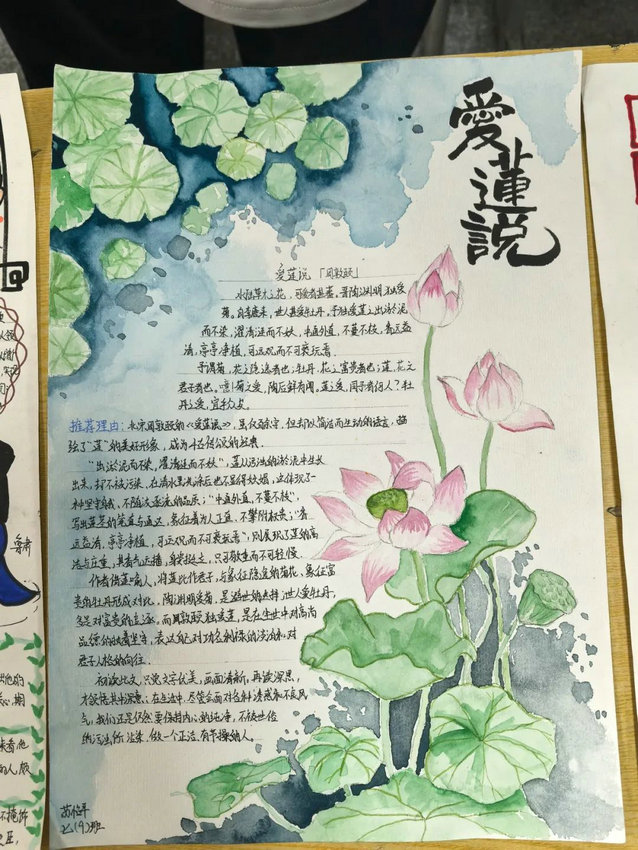 愛蓮說
爱莲说「周敦颐」
水陆草木之花，可爱者甚蕃。晋陶渊明独爱
菊。自李唐来，世人甚爱牡丹。予独爱莲之出淤泥
而不染，濯清涟而不妖，中通外直，不蔓不枝，香远益
清，亭亭净植，可远观而不可亵玩焉
予谓菊，花之隐逸者也；牡丹，花之富贵者也；莲，花之
君子者也。噫！菊之爱，陶后鲜有闻。莲之爱，同予者何人？牡
丹之爱，宜乎众矣
推荐理由：北宋周敦颐的《爱莲说》，虽仅百余字，但却以简洁而生动的语言，描
绘了"莲"的美好形象，成为千古传诵的经典
"出淤泥而不染，濯清涟而不妖"，莲从污浊的淤泥中生长
出来，却不被污染，在清水里洗涤后也不显得妖媚，这体现了一
种坚守自我，不随波逐流的品质；"中通外直，不蔓不枝"，
写出莲茎的笔直与通达，象征着为人正直，不攀附权贵；"香
远益清，亭亭净植，可远观而不可亵玩焉"，则表现了莲的高
洁与庄重，具有气质，只可敬重而不可轻慢
作者借莲喻人，将莲比作君子，与象征隐逸的菊花、象征富
贵的牡丹形成对比，陶渊明爱菊，是避世的选择，世人爱牡丹，
多是对富贵的追逐，而周敦颐独爱莲，是在尘世中对高尚
品德的执着坚守，表达自己对功名利禄的淡泊和对
君子人格的向往．
初读此文，只觉文字优美，画面清新，再读深思，
才领悟其中深意：在生活中，尽管会面对各种诱惑和不良风
气，我们还是仍然要保持内心的纯净，不被世俗
的污浊所沾染，做一个正洁、有节操的人．
七(9)班
鲁肃